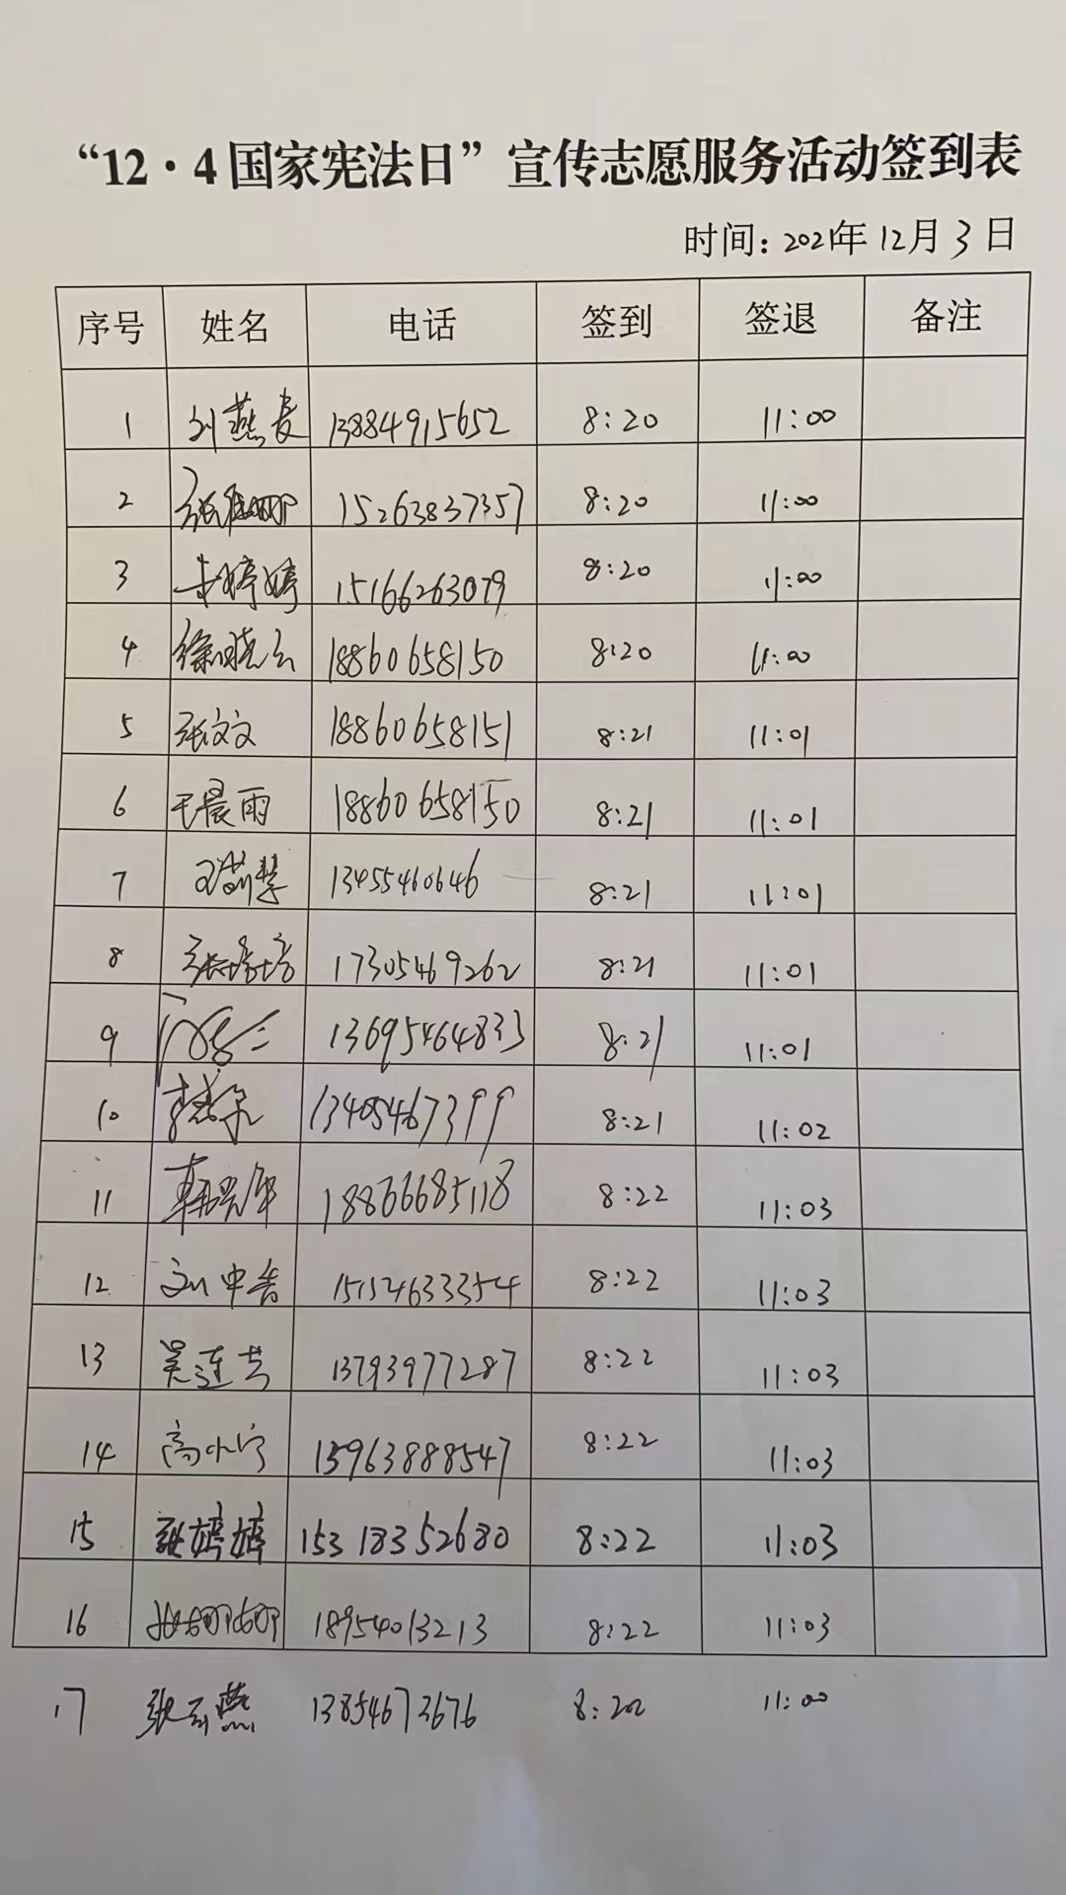 “12·4国家宪法日”宣传志愿服务活动签到表
时间：2021年12月3日
序号 姓名 电话 签到 签退 备注
1 刘燕 13884915652 8:20 11:00
2 张 娜 15263837357 8:20 11:00
3 婷婷 15166263079 8:20 11:00
4 徐晓云 18860658150 8:20 11:00
5 张文文 18860658151 8:21 11:01
6 于晨雨 18860658150 8:21 11:01
7 慧 13455460646 8:21 11:01
8 张培培 17305469262 8:21 11:01
9 13695464833 8:21 11:01
10 李 13405467399 8:21 11:02
11 韩 军 18866685118 8:22 11:03
12 刘中 15154633354 8:22 11:03
13 吴连 13793977287 8:22 11:03
14 高小宁 13963888547 8:22 11:03
15 张婷婷 15318352680 8:22 11:03
16 娜娜 18954013213 8:22 11:03
17 张云燕 13854673676 8:20 11:00